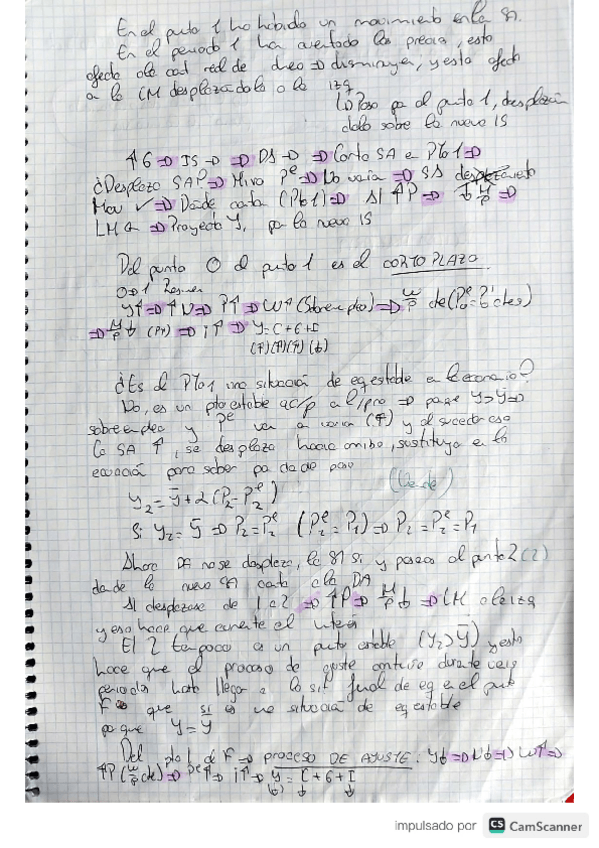 En el punto 1 ha habido un movimiento en la SA.
En el periodo 1 ha aumentado los precios, esto
afecta a la cant real de dinero ⇒ disminuyen, y esto afecta
a la LM desplazándola a la izq
↳ Paso por el punto 1, desplazán
dola sobre la nueva IS
↑G ⇒ IS → ⇒ DA → ⇒ Corto SA en Pto 1 ⇒
¿Desplazo SA? ⇒ Miro Pᵉ ⇒ No varía ⇒ SA
Mov ✓ ⇒ Donde corta (Pto 1) ⇒ Si ↑P ⇒ ↓ M/P ⇒
LM ⇒ Proyecto Y, por la nueva IS
Del punto 0 al punto 1 es el CORTO PLAZO.
0⇒1
Y↑ ⇒ ↑N ⇒ P↑ ⇒ W↑ (Sobreempleo) ⇒ W/P cte
⇒ M/P ↓ (P↑) ⇒ i↑ ⇒ Y = C + G + I
(↑)(↑)(↑)(↓)
¿Es el Pto 1 una situación de eq estable en la economía?
No, es un pto estable a c/p a l/p no ⇒ porque Y>Ȳ ⇒
sobreempleo y Pᵉ va a variar (↑) y al suceder eso
la SA ↑, se desplaza hacia arriba, sustituyo en la
ecuación para saber por donde pasa
Y₂ = Ȳ + 2 (P₂ - P₂ᵉ)
Si Y₂ = Ȳ ⇒ P₂ = P₂ᵉ (P₂ᵉ = P₁) ⇒ P₂ = P₂ᵉ = P₁
Ahora DA no se desplaza, la SA si, y pasamos al punto 2 (2)
donde la nueva SA corta a la DA
Al desplazarse de 1 a 2 ⇒ ↑P ⇒ M/P ↓ ⇒ LM a la izq
y eso hace que aumente el interés
El 2 tampoco es un punto estable (Y₂>Ȳ) y esto
hace que el proceso de ajuste continúe durante varios
periodos hasta llegar a la sit final de eq en el punto
F que si es una situación de eq estable
porque Y = Ȳ
Del pto 1 al F ⇒ PROCESO DE AJUSTE. Y↓ ⇒ N↓ ⇒ W↑ ⇒
↑P (W/P cte) ⇒ Pᵉ↑ ⇒ i↑ ⇒ Y = C + G + I
(↓) ↓ ↓
impulsado por CS CamScanner